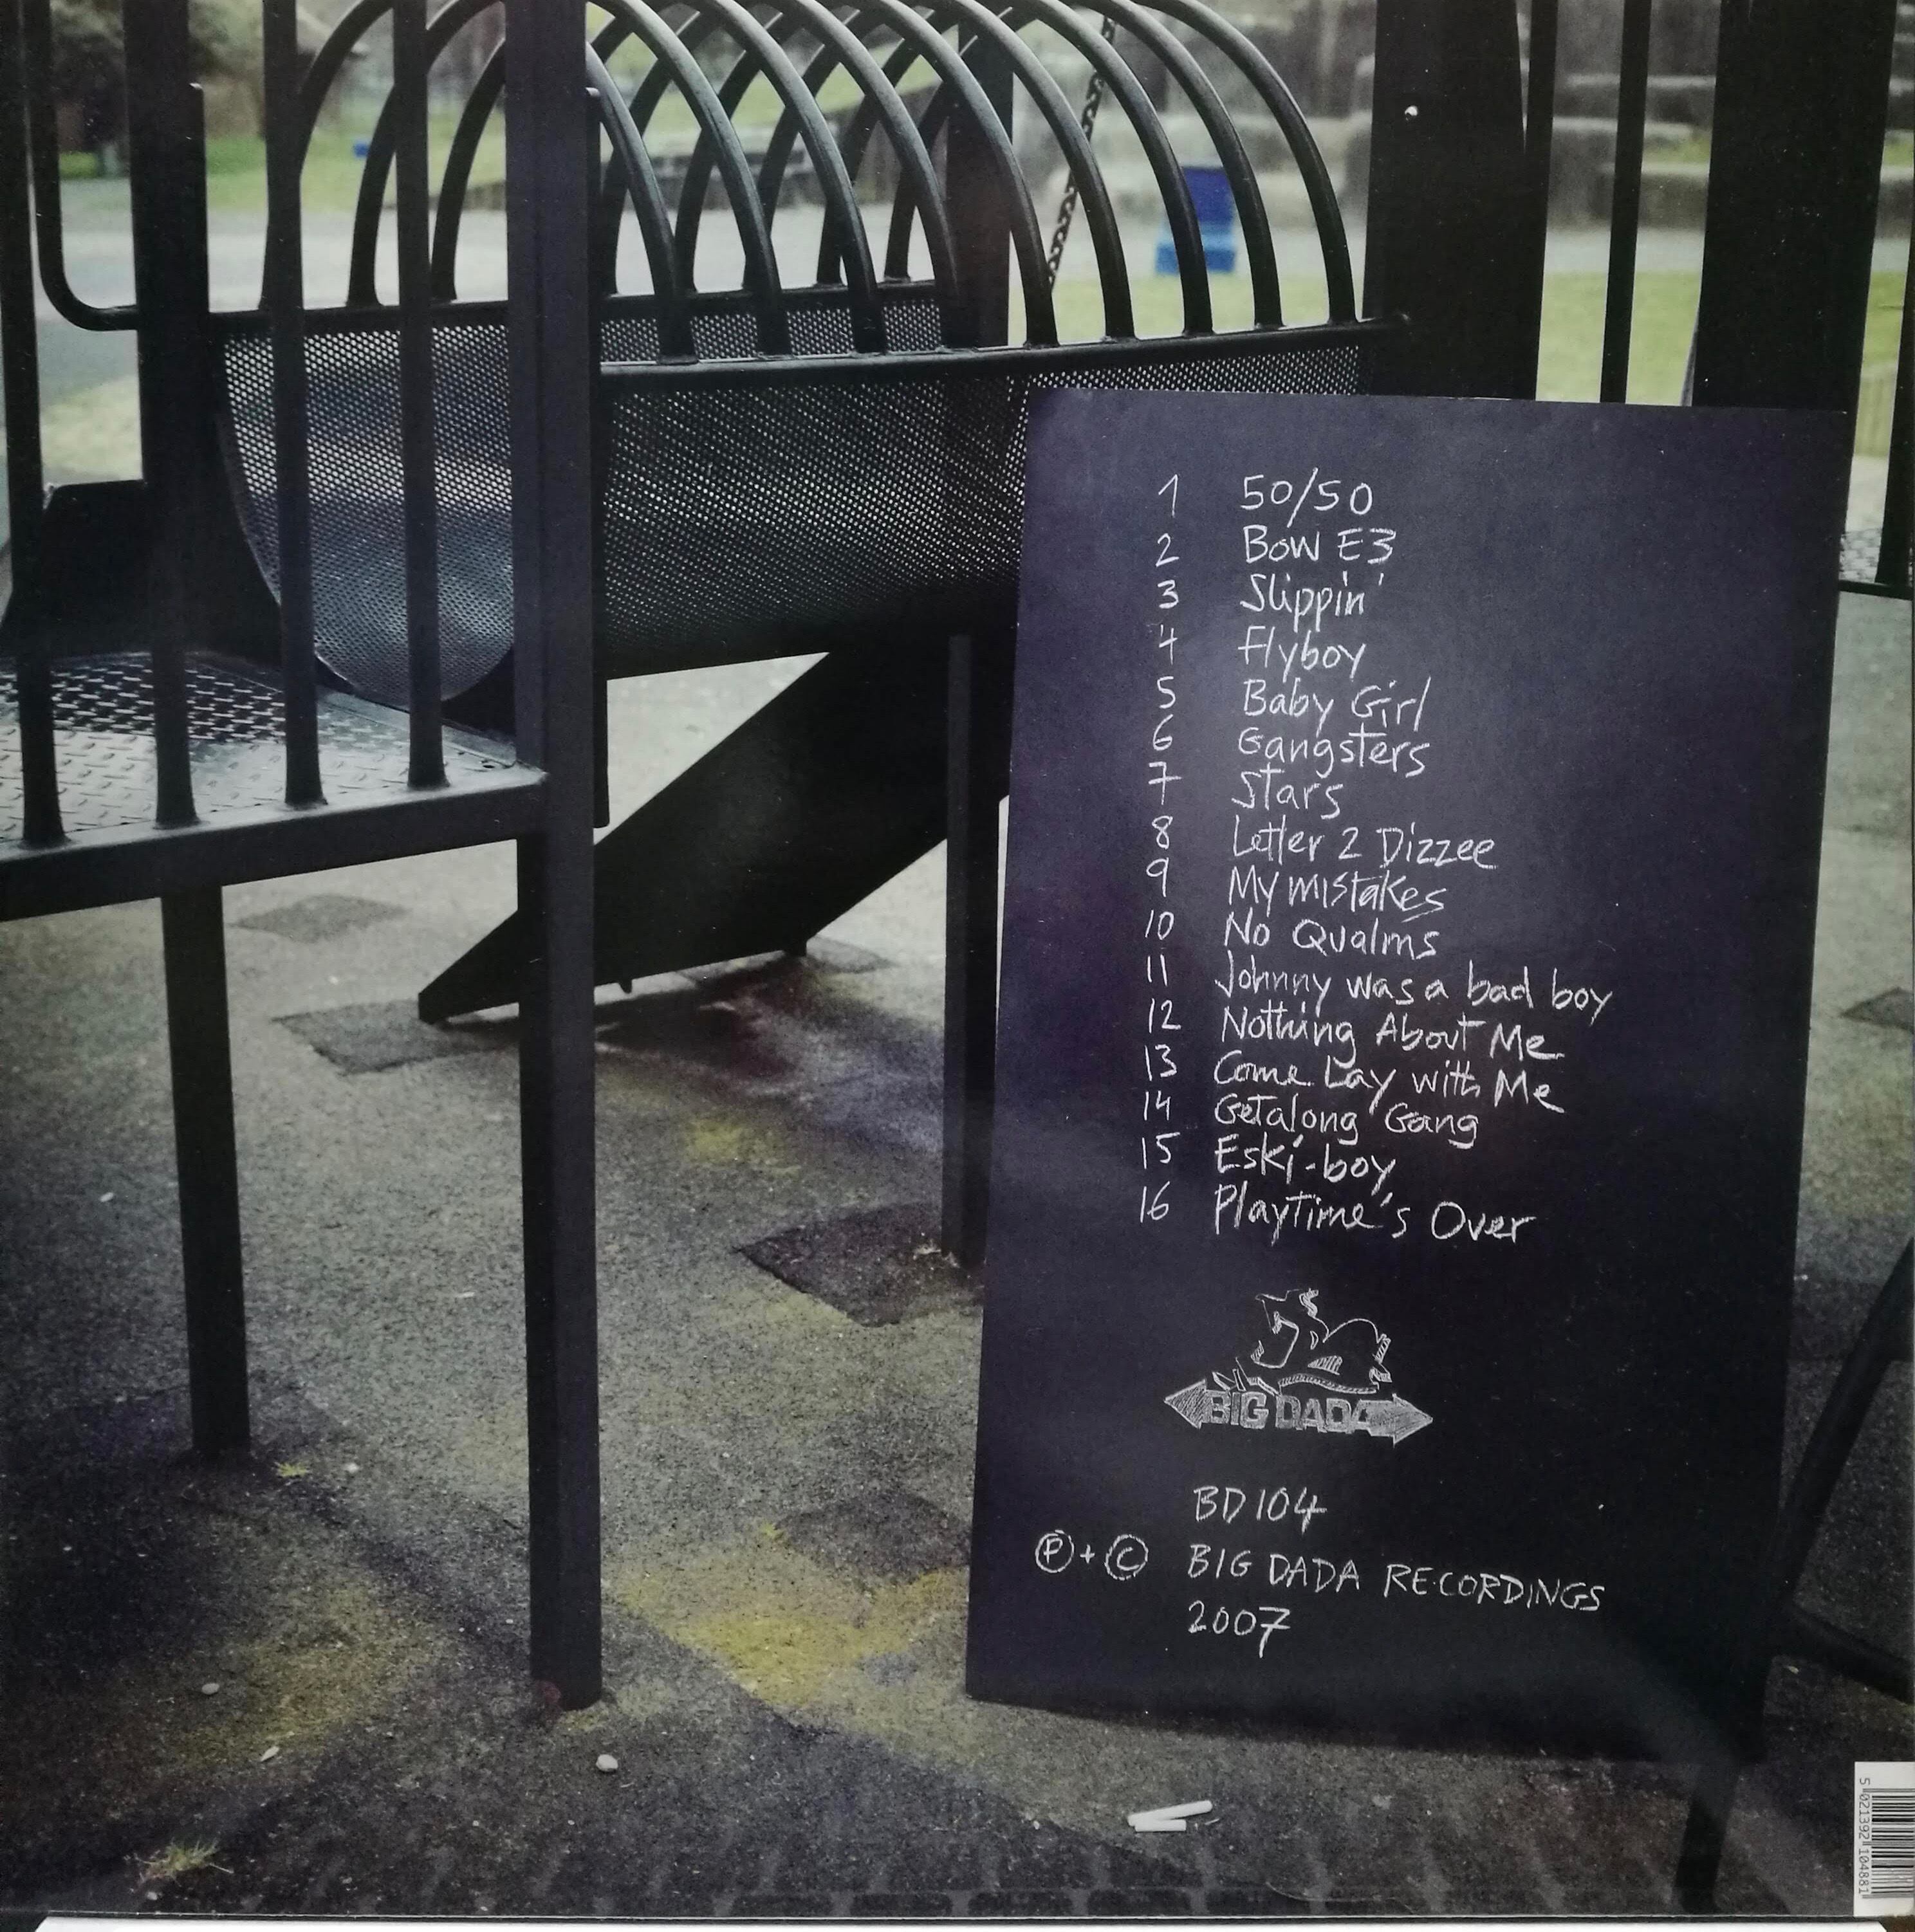 1 50/50
2 Bow E3
3 Slippin'
4 Flyboy
5 Baby Girl
6 Gangsters
7 Stars
8 Letter 2 Dizzee
9 My mistakes
10 No Qualms
11 Johnny was a bad boy
12 Nothing About Me
13 Come Lay with Me
14 Getalong Gang
15 Eski-boy
16 Playtime's Over
BIG DADA
BD104
Ⓟ + © BIG DADA RECORDINGS
2007
5 021392 104881